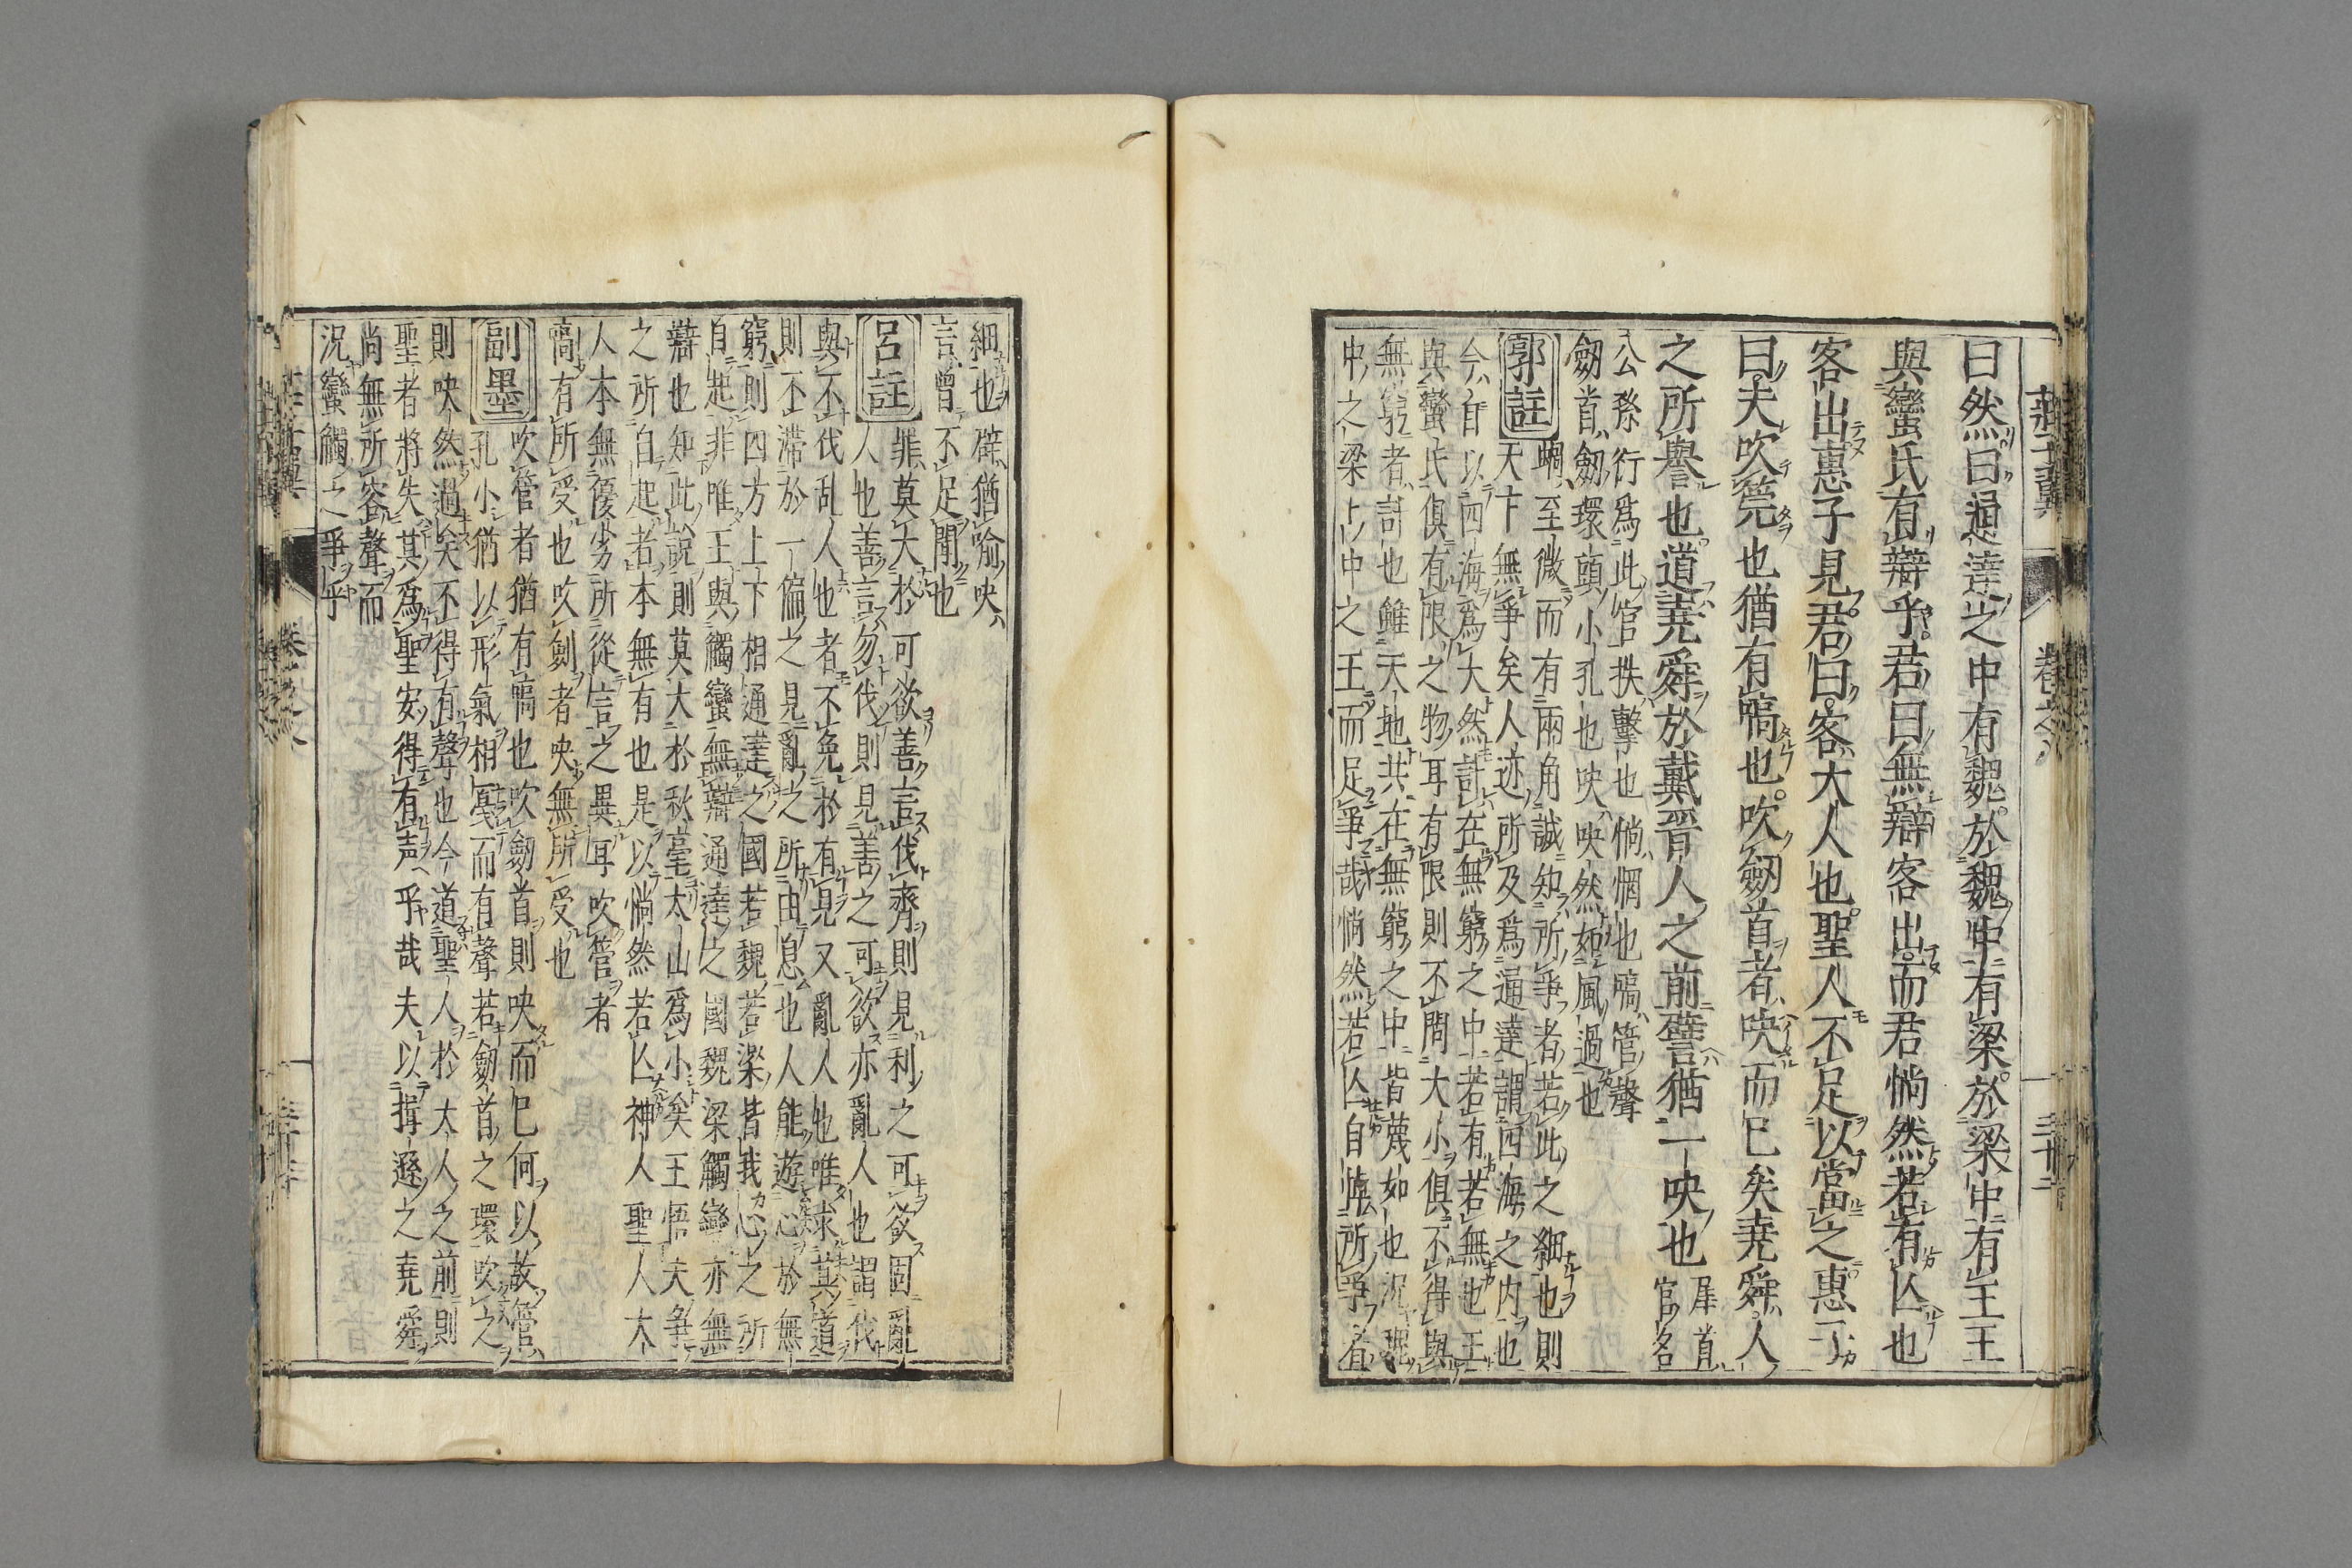 曰然曰通達之中有魏於魏中有梁於梁中有王王
與蠻氏有辯乎君曰無辯客出而君惝然若有亾也
客出惠子見君曰客大人也聖人不足以當之惠子
曰夫吹筦也猶有嗃也吹劒首者吷而已矣堯舜人
之所譽也道堯舜於戴晋人之前譬猶一吷也
犀首
官名
公孫衍爲此官抶擊也惝惘也嗃管聲
劒首劒環頭小孔也吷吷然如風過也
郭註
蝸至微而有兩角誠知所爭者若此之細也則
天下無爭矣人迹所及爲通達謂四海之内也
今自以四海爲大然計在無窮之中若有若無也王
與蠻氏俱有限之物耳有限則不問大小俱不得與
無窮者計也雖天地共在無窮之中皆蔑如也況魏
中之梁梁中之王而足爭哉惝然若亾自悼所爭者
細也辟猶喻吷
言曾不足聞也
呂註
罪莫大於可欲善言伐齊則見利之可欲固亂
人也善言勿伐則見善之可欲亦亂人也謂伐
與不伐乱人也者不免於有見又亂人也唯求其道
則不滞於一偏之見亂之所由息也人能遊心於無
窮則四方上下相通達之國若魏若梁皆我心之所
自起非唯王與觸蠻無辯通達之國魏梁觸蠻亦無
辯也知此説則莫大於秋毫太山爲小矣王悟夫爭
之所自起者本無有也是以惝然若亾神人聖人大
人本無優劣所從言之異耳吹管者
嗃有所受也吹劍者吷無所受也
副墨
吹管者猶有嗃也吹劒首則吷而已何以故管
孔小猶以形氣相戞而有聲若劒首之環吹之
則吷然過矣不得有聲也今道聖人於大人之前則
聖者將失其爲聖安得有声乎哉夫以揖遜之堯舜
尚無所容聲而
況蠻觸之爭乎
莊子翼
卷之八
三十二